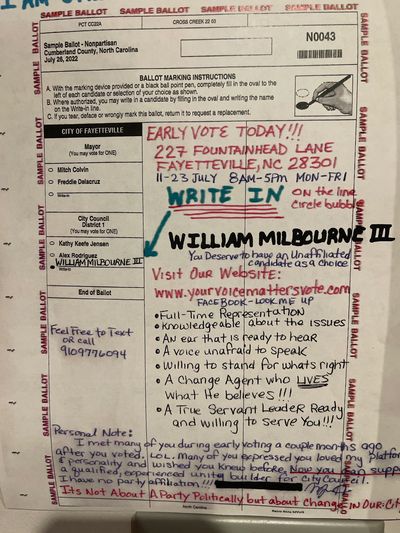 I AM
SAMPLE BALLOT SAMPLE BALLOT SAMPLE BALLOT SAMPLE BALLOT
PCT CC22A
CROSS CREEK 22 03
Sample Ballot - Nonpartisan
Cumberland County, North Carolina
July 26, 2022
N0043
BALLOT MARKING INSTRUCTIONS
A. With the marking device provided or a black ball point pen, completely fill in the oval to the
left of each candidate or selection of your choice as shown.
B. Where authorized, you may write in a candidate by filling in the oval and writing the name
on the Write-in line.
C. If you tear, deface or wrongly mark this ballot, return it to request a replacement.
CITY OF FAYETTEVILLE
Mayor
(You may vote for ONE)
Mitch Colvin
Freddie Delacruz
Write-in
City Council
District 1
(You may vote for ONE)
Kathy Keefe Jensen
Alex Rodriguez
WILLIAM MILBOURNE III
Write-in
End of Ballot
Feel Free to Text
or call
9109776094
EARLY VOTE TODAY!!!
227 FOUNTAINHEAD LANE
FAYETTEVILLE, NC 28301
11-23 JULY 8AM-5PM MON-FRI
WRITE IN
ON the line
Circle bubble
WILLIAM MILBOURNE III
You Deserve to have an Unaffiliated
candidate as a choice
Visit Our Website:
www.yourvoicemattersvote.com
FACEBOOK-LOOK ME UP
• Full-Time Representation
• Knowledgeable about the issues
• An ear that is ready to hear
• A voice unafraid to speak
• Willing to stand for whats right
• A Change Agent who LIVES
What He believes!!!
• A True Servant Leader Ready
and willing to serve You!!!
Personal Note:
I met many of you during early voting a couple months ago
after you voted. LOL. Many of you expressed you loved my platform
& personality and wished you knew before. Now you can
a qualified, experienced unity builder for City Council.
I have no party affiliation!!!
Its Not About A Party Politically but about Change IN OUR City
North Carolina
SAMPLE BALLOT SAMPLE BALLOT SAMPLE BALLOT SAMPLE BALLOT
SAMPLE BALLOT SAMPLE BALLOT SAMPLE BALLOT SAMPLE BALLOT